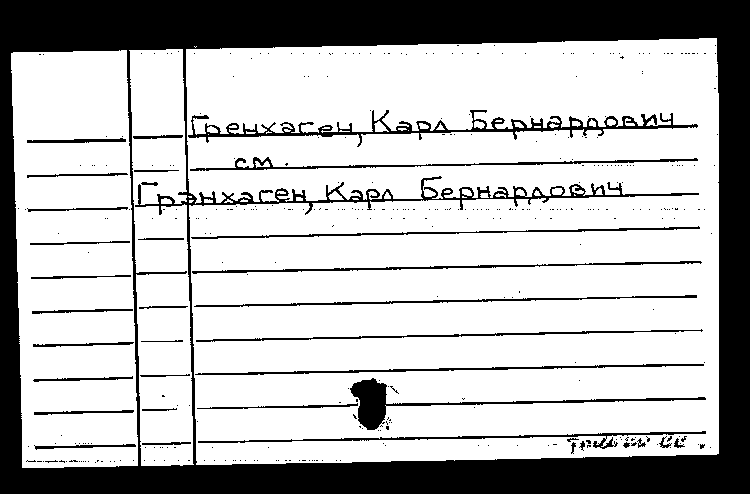 Гренхаген, Карл Бернардович
см.
Грэнхаген, Карл Бернардович